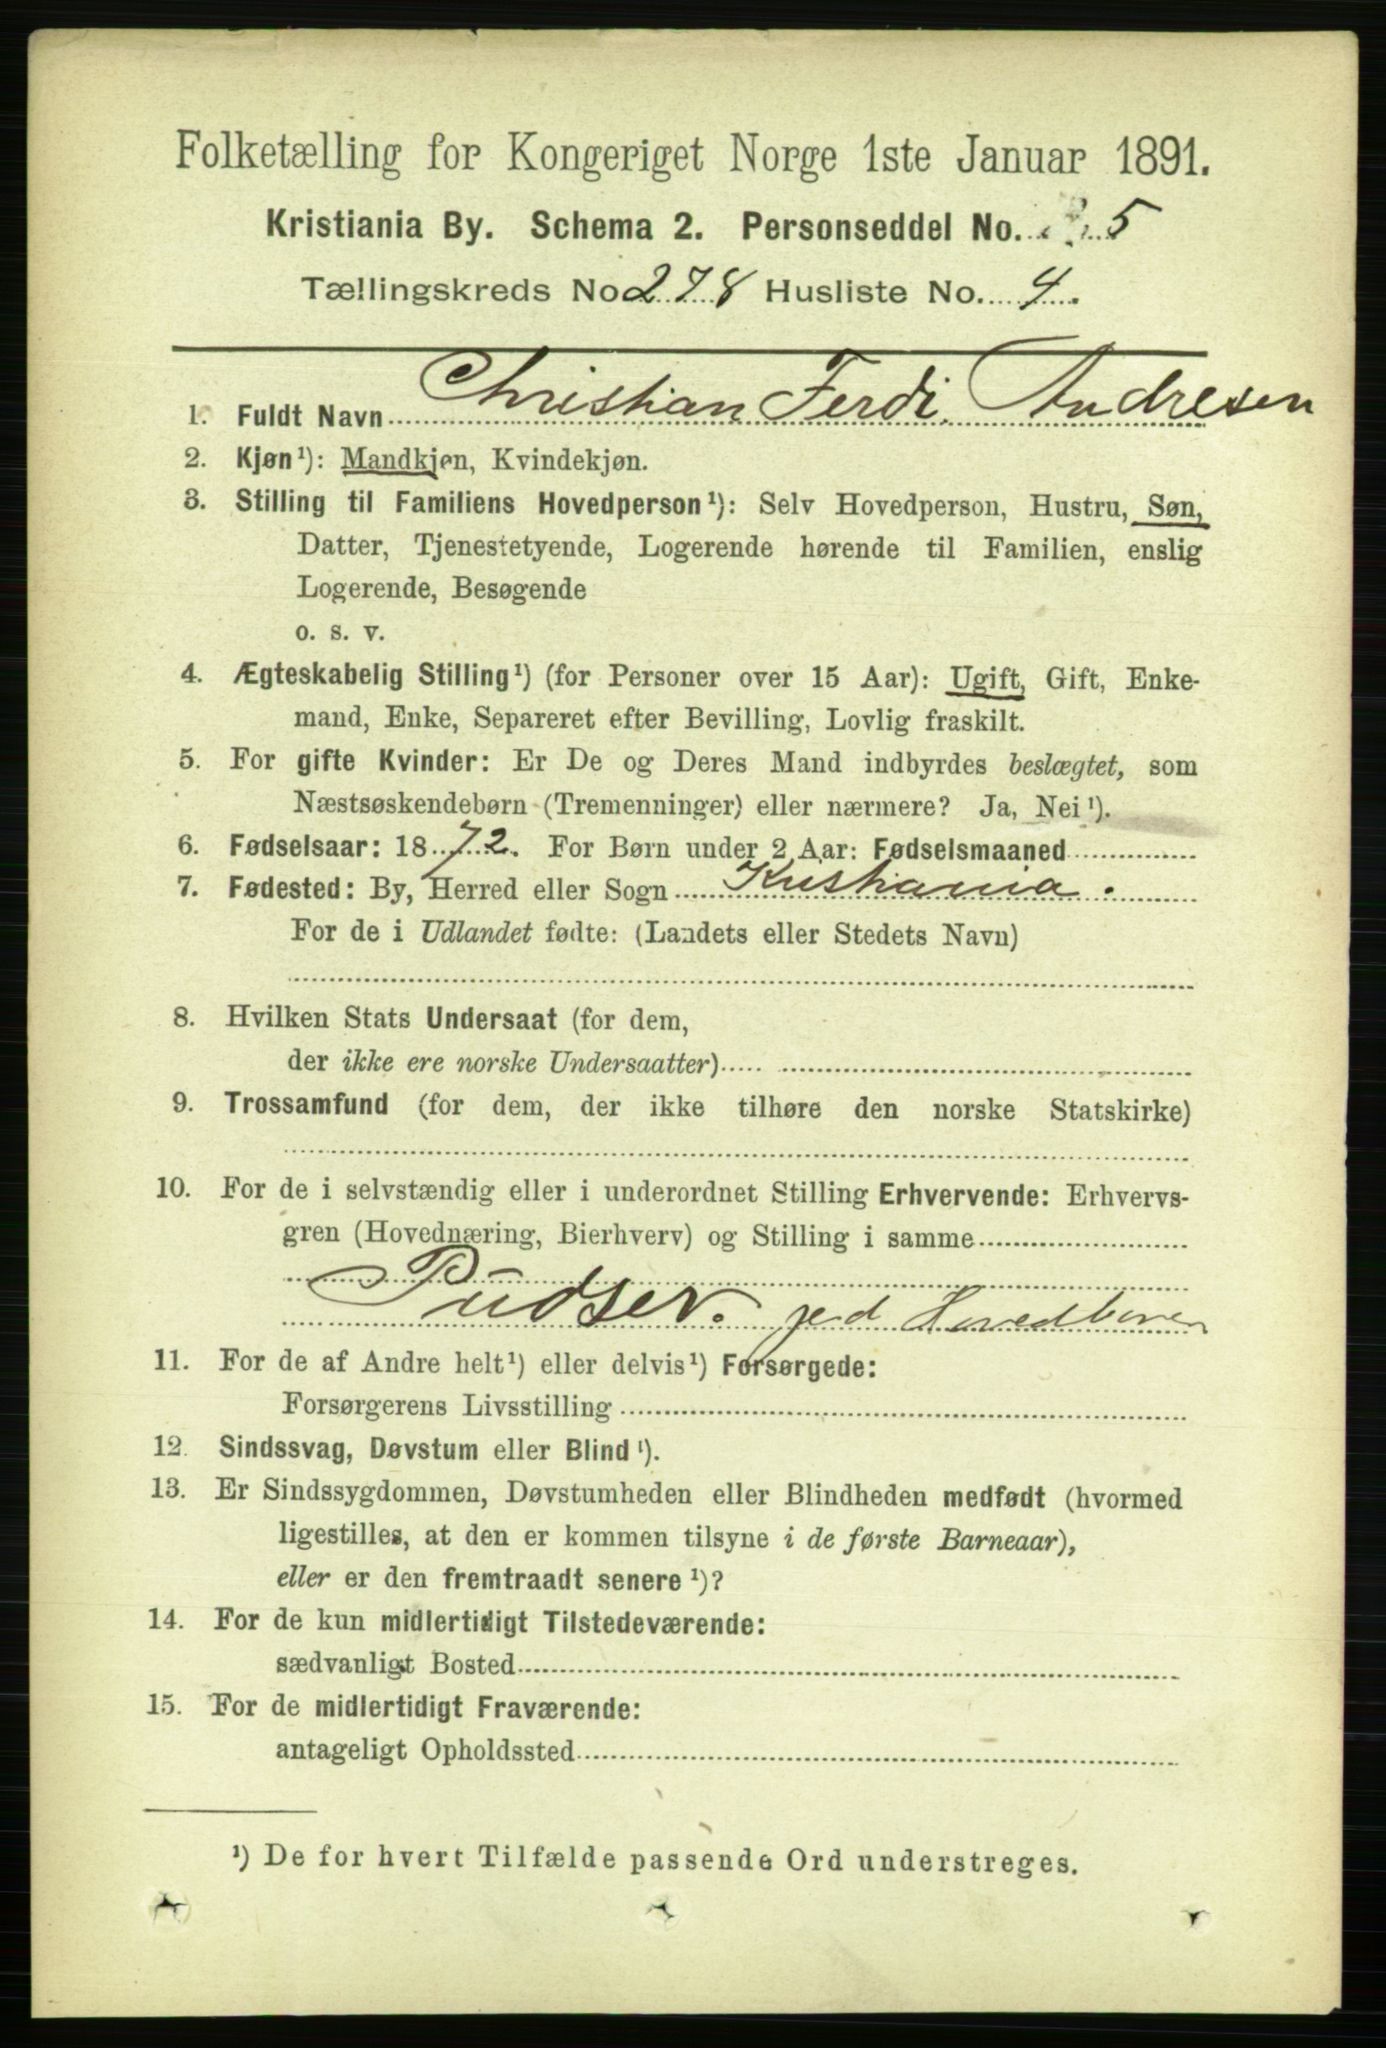 Folketælling for Kongeriget Norge 1ste Januar 1891.
Kristiania By. Schema 2. Personseddel No. 5
Tællingskreds No 278 Husliste No. 4.
1. Fuldt Navn Christian Ferdi. Andresen
2. Kjøn¹): Mandkjøn, Kvindekjøn.
3. Stilling til Familiens Hovedperson¹): Selv Hovedperson, Hustru, Søn,
Datter, Tjenestetyende, Logerende hørende til Familien, enslig
Logerende, Besøgende
o. s. v.
4. Ægteskabelig Stilling¹) (for Personer over 15 Aar): Ugift, Gift, Enke-
mand, Enke, Separeret efter Bevilling, Lovlig fraskilt.
5. For gifte Kvinder: Er De og Deres Mand indbyrdes beslægtet, som
Næstsøskendebørn (Tremenninger) eller nærmere? Ja, Nei¹).
6. Fødselsaar: 1872. For Børn under 2 Aar: Fødselsmaaned
7. Fødested: By, Herred eller Sogn Kristiania.
For de i Udlandet fødte: (Landets eller Stedets Navn)
8. Hvilken Stats Undersaat (for dem,
der ikke ere norske Undersaatter)
9. Trossamfund (for dem, der ikke tilhøre den norske Statskirke)
10. For de i selvstændig eller i underordnet Stilling Erhvervende: Erhvervs-
gren (Hovednæring, Bierhverv) og Stilling i samme
Pudser. ved Hovedbanen
11. For de af Andre helt¹) eller delvis¹) Forsørgede:
Forsørgerens Livsstilling
12. Sindssvag, Døvstum eller Blind¹).
13. Er Sindssygdommen, Døvstumheden eller Blindheden medfødt (hvormed
ligestilles, at den er kommen tilsyne i de første Barneaar),
eller er den fremtraadt senere¹)?
14. For de kun midlertidigt Tilstedeværende:
sædvanligt Bosted
15. For de midlertidigt Fraværende:
antageligt Opholdssted
¹) De for hvert Tilfælde passende Ord understreges.